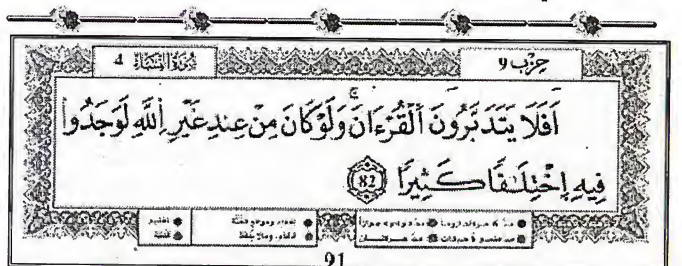 سُورَةُ النِّسَاءِ 4 حِزْب 9
اَفَلَا يَتَدَبَّرُونَ اَلْقُرْءَانَ وَلَوْ كَانَ مِنْ عِندِ غَيْرِ اِللَّهِ لَوَجَدُواْ
فِيهِ اِخْتِلَٰفًا كَثِيرًا 82
91